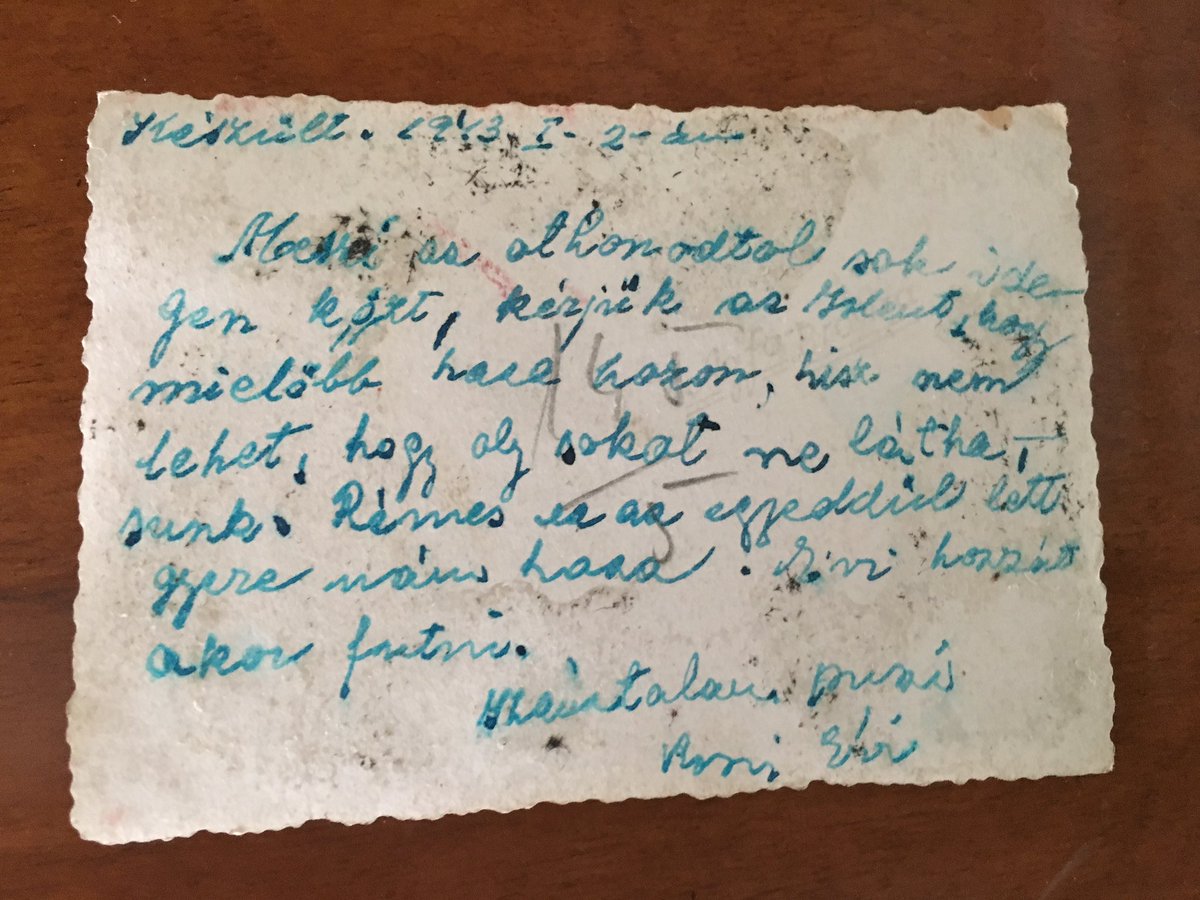 Készült. 1943 I- 2-án
Messi az othonodtol sok ide-
gen közt, kérjük az Istent, hogy
mielőbb haza hozon, hisz nem
lehet, hogy oly sokat ne látha,-
sunk. Rémes ez az egyeddül lett
gyere mán haza. Évi hozzát
akor futni.
Számtalan puszi
Évi